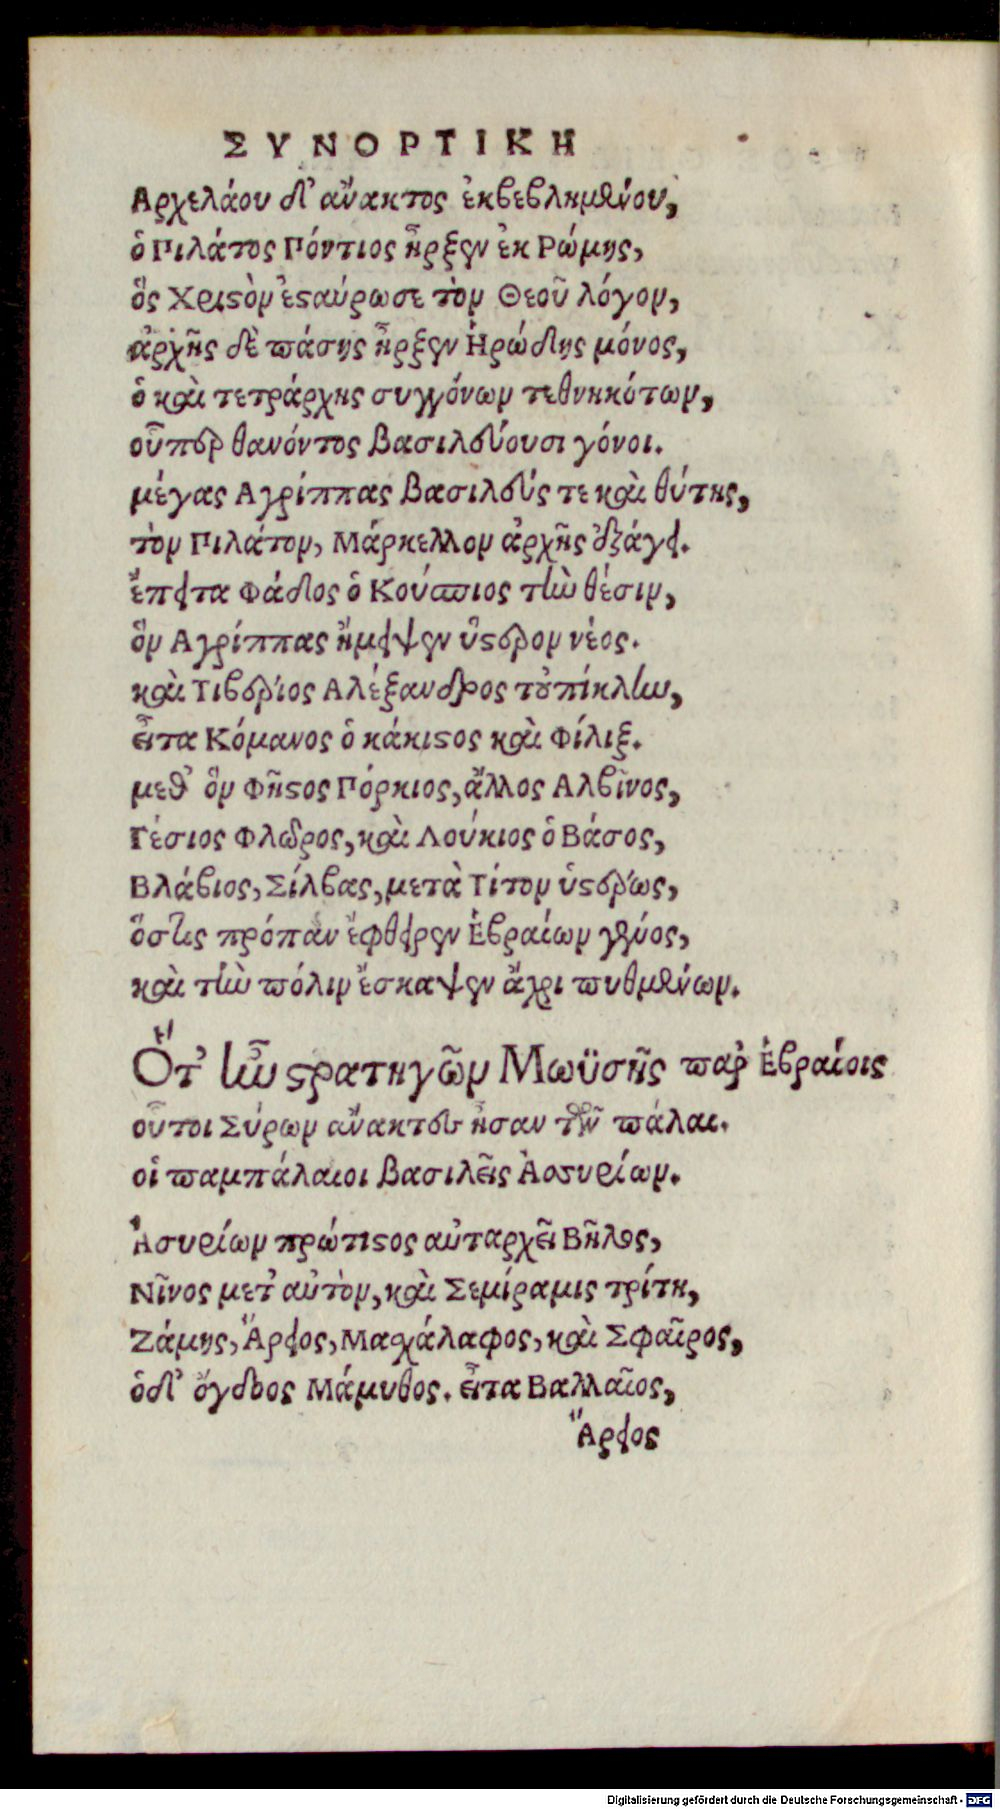 ΣΥΝΟΡΤΙΚΗ
Αρχελάου δ' ἄνακτος ἐκβεβλημένου,
ὁ Πιλάτος Πόντιος ἦρξεν ἐκ Ρώμης,
ὃς Χριστὸν ἐσταύρωσε τὸν Θεοῦ λόγον,
ἀρχῆς δὲ πάσης ἦρξεν Ἡρώδης μόνος,
ὁ καὶ τετράρχης συγγόνων τεθνηκότων,
οὗπερ θανόντος βασιλεύουσι γόνοι.
μέγας Αγρίππας βασιλεύς τε καὶ θύτης,
τὸν Πιλάτον, Μάρκελλον ἀρχῆς ἐξάγει.
ἔπειτα Φάδος ὁ Κούσπιος τὴν θέσιν,
ὃν Αγρίππας ἤμειψεν ὕστερον νέος.
καὶ Τιβέριος Αλέξανδρος τοὐπίκλην,
εἶτα Κόμανος ὁ κάκιστος καὶ Φίλιξ.
μεθ' ὃν Φῆστος Πόρκιος, ἄλλος Αλβῖνος,
Γέσιος Φλῶρος, καὶ Λούκιος ὁ Βάσος,
Βλάβιος, Σίλβας, μετὰ Τίτον ὑστέρως,
ὅστις πρόπαν ἔφθειρεν Ἑβραίων γένος,
καὶ τὴν πόλιν ἔσκαψεν ἄχρι πυθμένων.
Ὅτ' ἦν στρατηγῶν Μωϋσῆς παρ' Ἑβραίοις
οὗτοι Σύρων ἄνακτες ἦσαν τῶν πάλαι.
οἱ παμπάλαιοι βασιλεῖς Ἀσσυρίων.
Ἀσυρίων πρώτιστος αὐταρχεῖ Βῆλος,
Νῖνος μετ' αὐτὸν, καὶ Σεμίραμις τρίτη,
Ζάμης, Ἄρειος, Μαχάλαφος, καὶ Σφαῖρος,
ὁ δ' ὄγδοος Μάμυθος. εἶτα Βαλλαῖος,
Ἄρειος
Digitalisierung gefördert durch die Deutsche Forschungsgemeinschaft - DFG